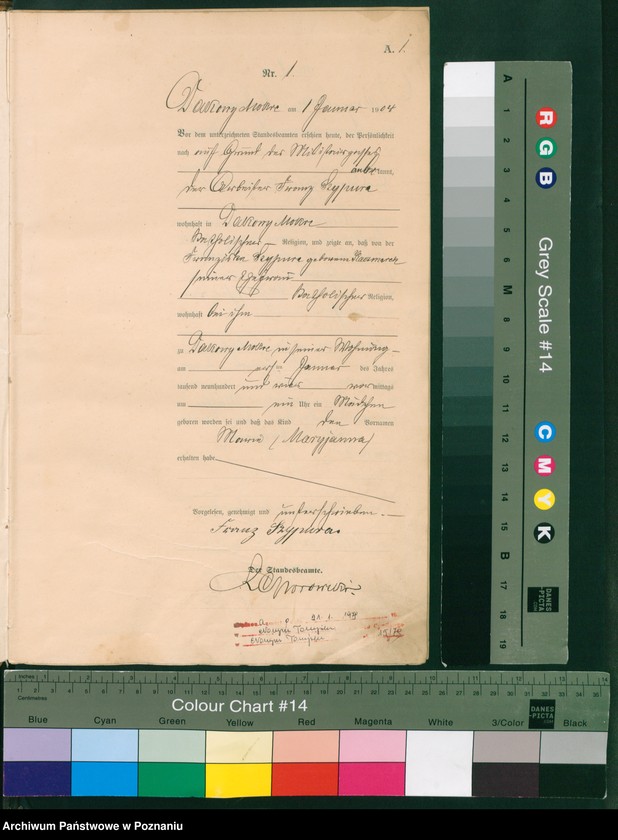 A. 1.
Nr. 1.
Dakowy Mokre am 1 Januar 1904
Vor dem unterzeichneten Standesbeamten erschien heute, der Persönlichkeit
nach auf Grund des Militairpasses
anerkannt,
der Arbeiter Franz Szypura
wohnhaft in Dakowy Mokre
Katholischer Religion, und zeigte an, daß von der
Franziska Szypura geborenen
seiner Ehefrau
Katholischer Religion,
wohnhaft bei ihm
zu Dakowy Mokre in seiner Wohnung
am ersten Januar des Jahres
tausend neunhundert und vier vormittags
um ein Uhr ein Mädchen
geboren worden sei und daß das Kind den Vornamen
Marie (Maryjanna)
erhalten habe.
Vorgelesen, genehmigt und unterschrieben.
Franz Szypura.
Der Standesbeamte.
Grey Scale #14
R
G
B
C
M
Y
K
A
1
2
3
4
5
6
M
8
9
10
11
12
13
14
15
B
17
18
19
DANES
-PICTA
.COM
Inches
Centimetres
Colour Chart #14
DANES
-PICTA
.COM
Blue Cyan Green Yellow Red Magenta White 3/Color Black
Archiwum Państwowe w Poznaniu